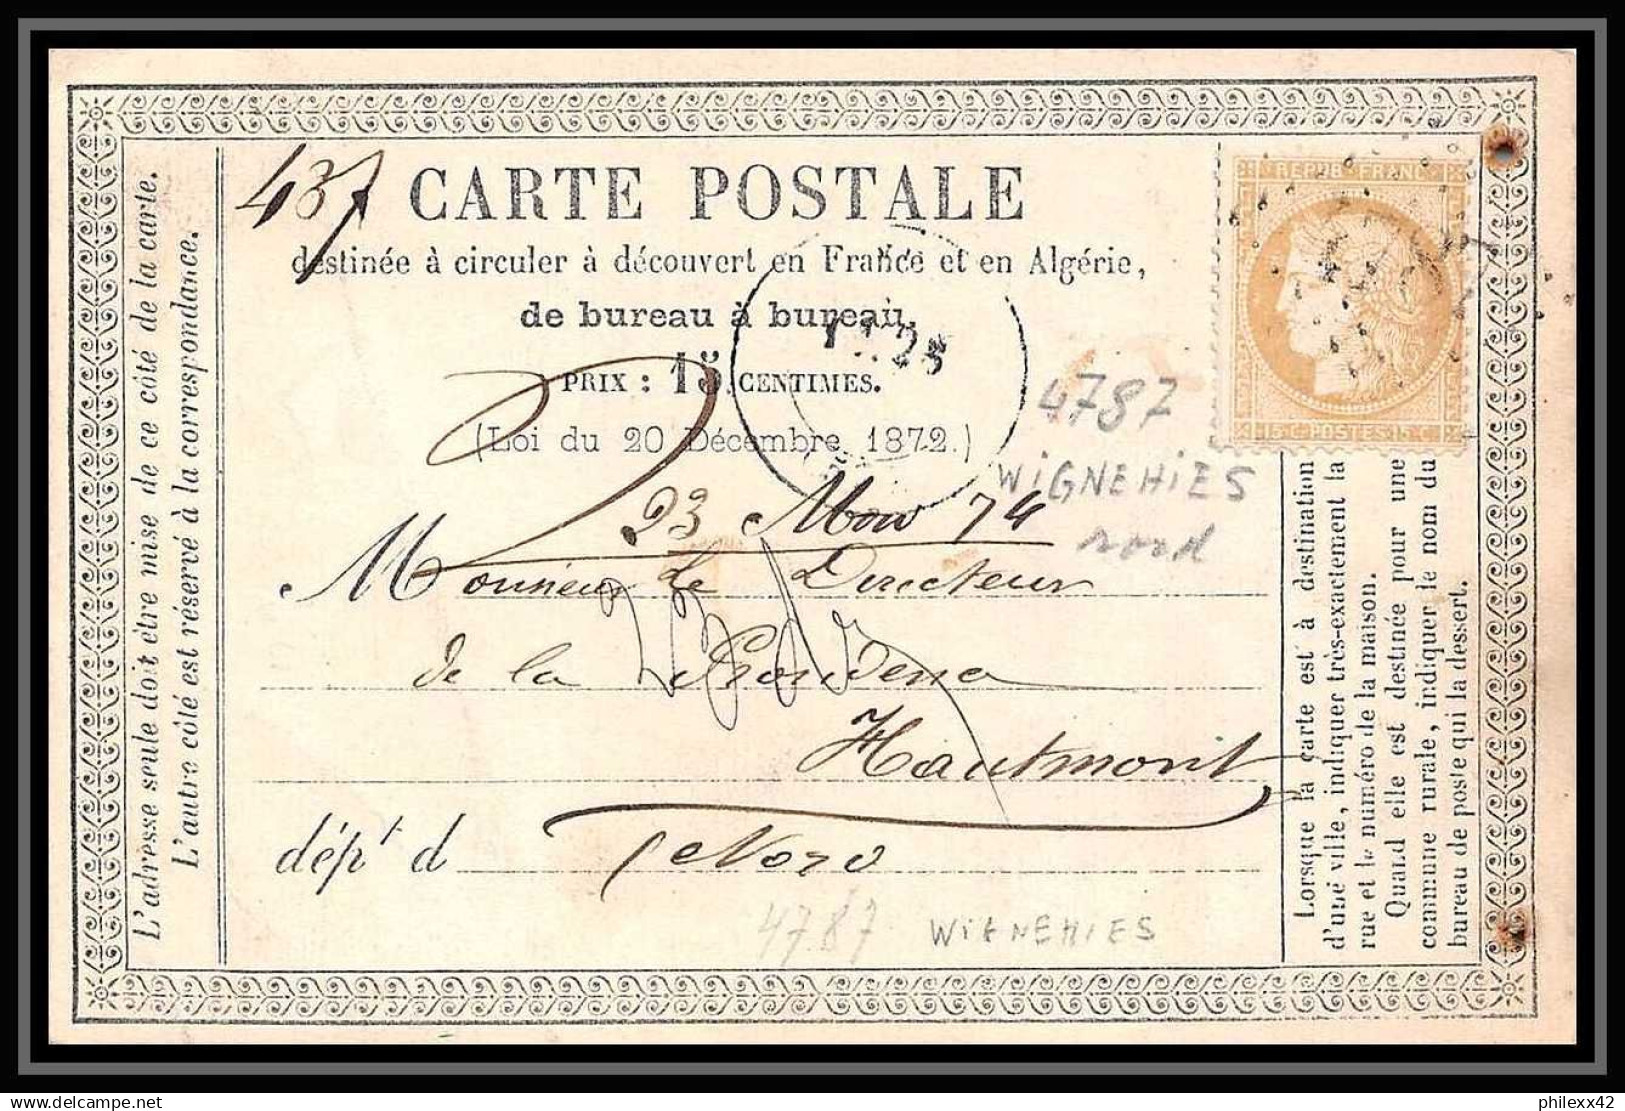 437
CARTE POSTALE
destinée à circuler à découvert en France et en Algérie,
de bureau à bureau.
PRIX : 15 CENTIMES.
(Loi du 20 Décembre 1872.)
REPUB·FRANC·
15 C·POSTES·15 C·
4787
WIGNEHIES
nord
23 Mars 74
Monsieur le Directeur
de la Providence
Hautmont
dép.t d Nord
4787 WIGNEHIES
L'adresse seule doit être mise de ce côté de la carte.
L'autre côté est réservé à la correspondance.
Lorsque la carte est à destination
d'une ville, indiquer très-exactement la
rue et le numéro de la maison.
Quand elle est destinée pour une
commune rurale, indiquer le nom du
bureau de poste qui la dessert.
delcampe.net
philexx42